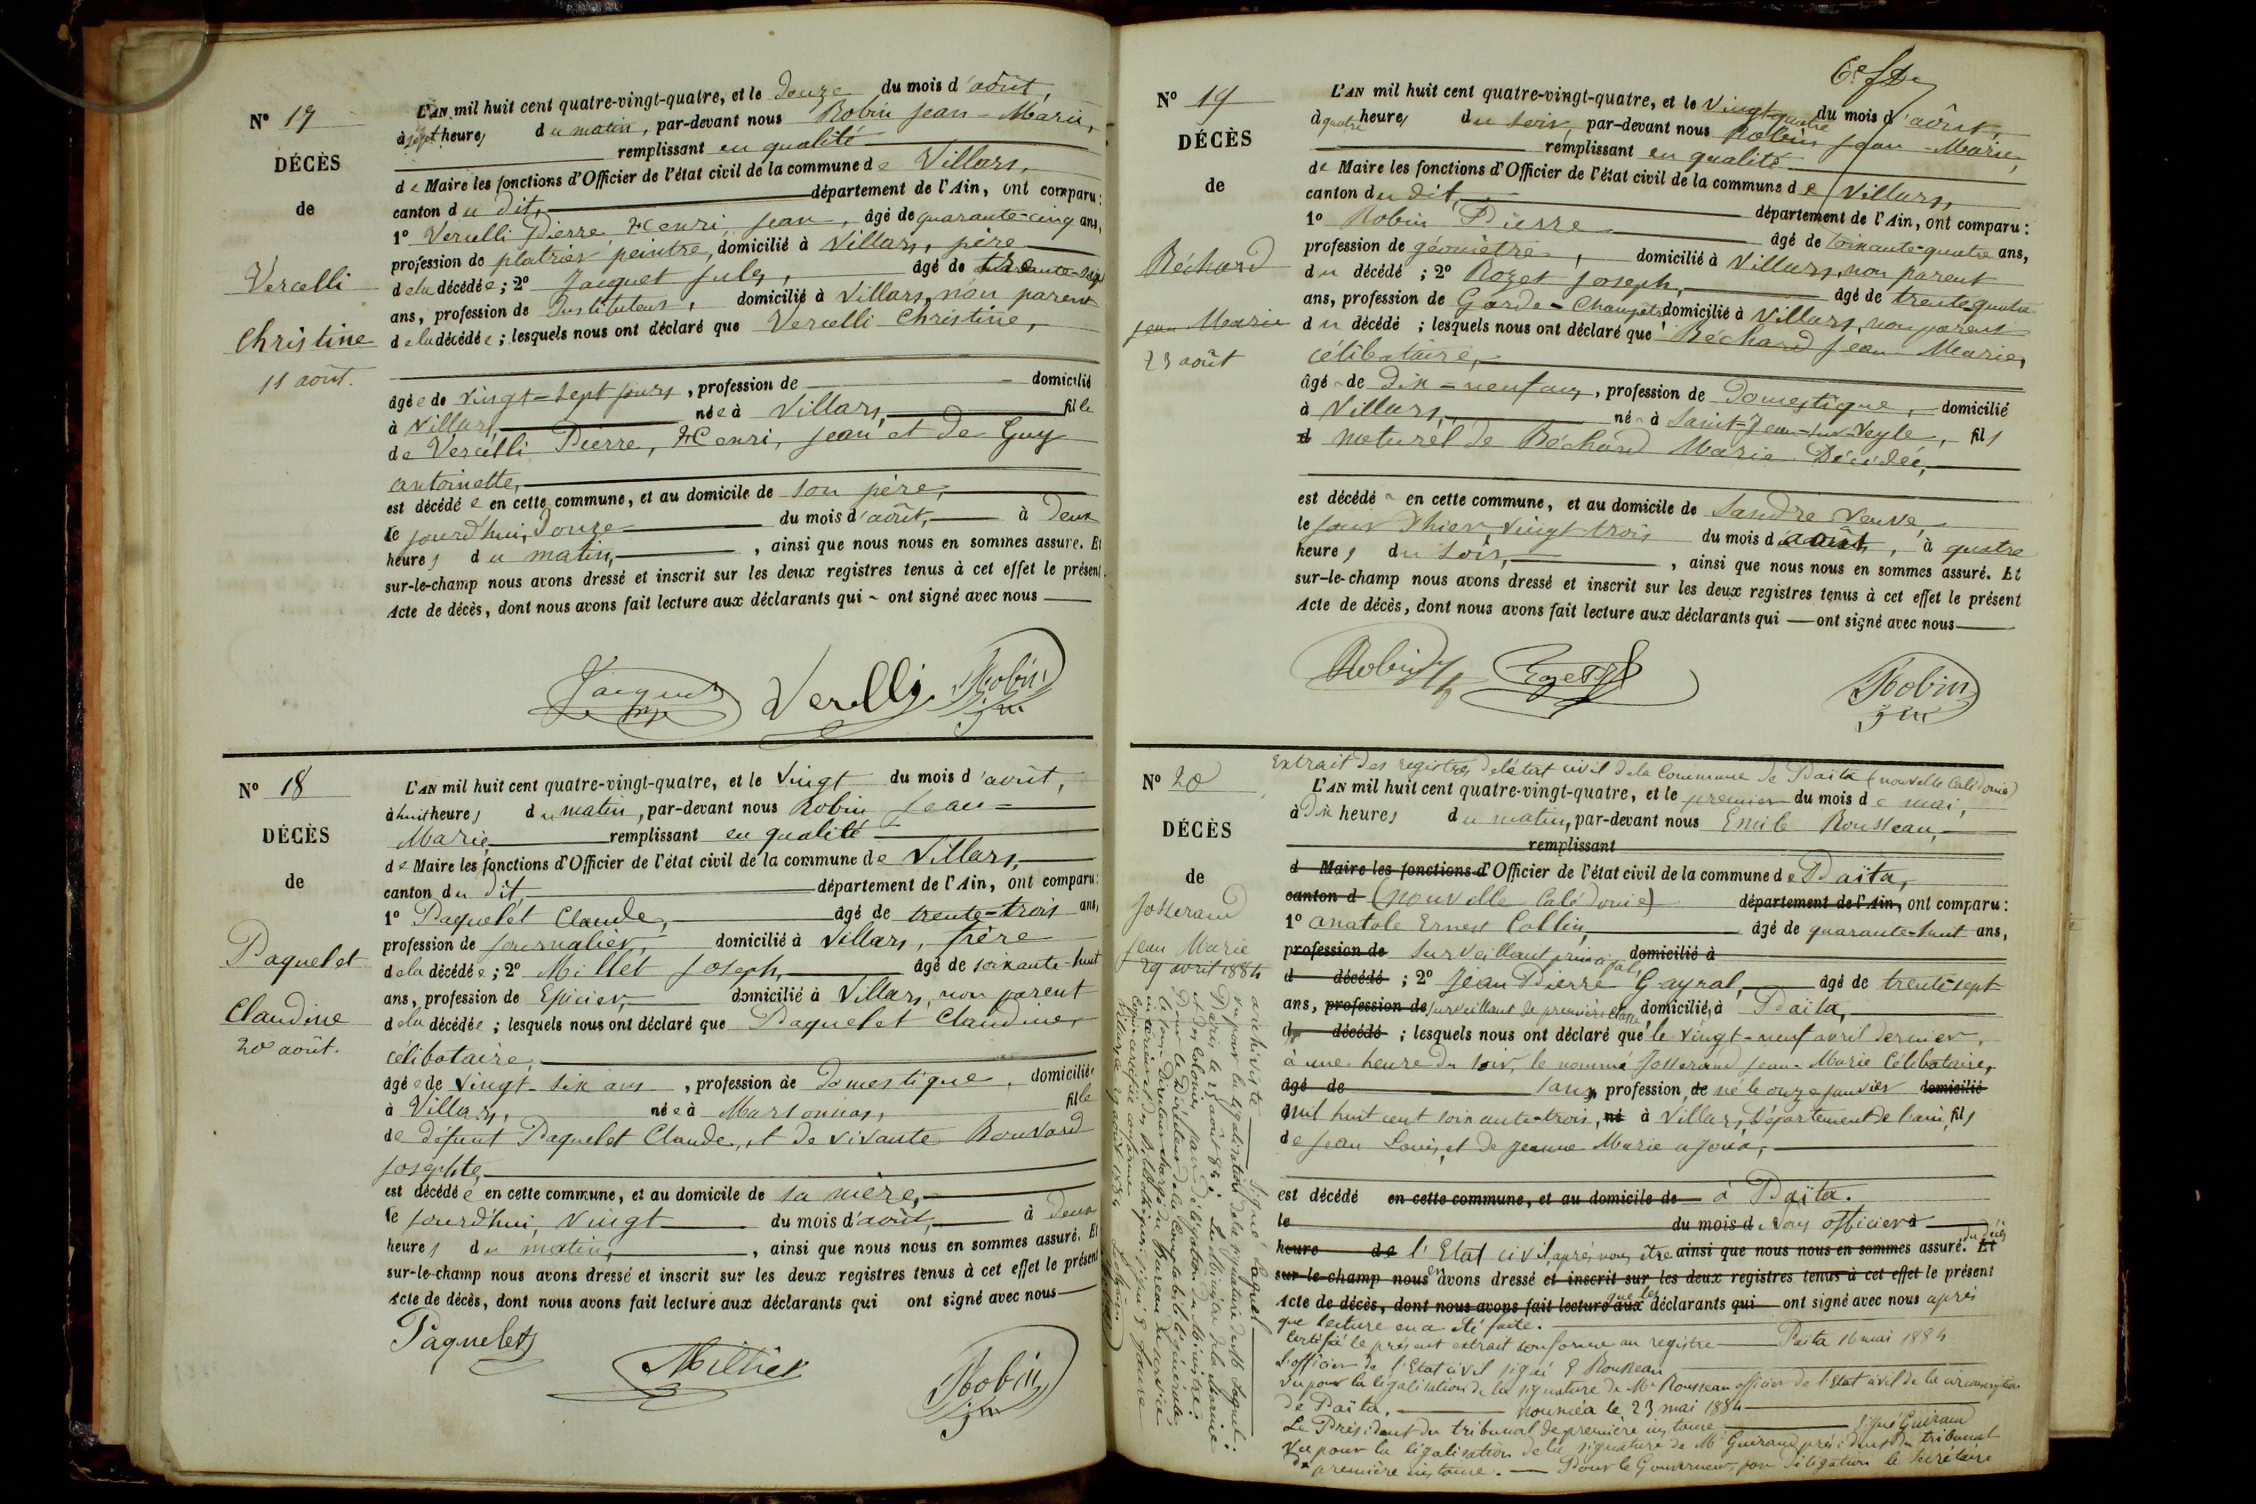 N° 17
DÉCÈS
de
Vercelli
Christine
11 août.
L'AN mil huit cent quatre-vingt-quatre, et le Douze du mois d'août,
à sept heures du matin, par-devant nous Robin Jean-Marie,
remplissant en qualité
de Maire les fonctions d'Officier de l'état civil de la commune de Villars,
canton du dit, département de l'Ain, ont comparu:
1° Vercelli Pierre, Henri, Jean, âgé de quarante-cinq ans,
profession de platrier peintre, domicilié à Villars, père
de la décédée; 2° Jacquet Jules, âgé de
ans, profession de Instituteur, domicilié à Villars, non parent
de la décédée; lesquels nous ont déclaré que Vercelli Christine,
âgée de vingt-sept jours, profession de domicilié
à Villars, née à Villars, fille
de Vercelli Pierre, Henri, Jean, et de Guy
antoinette,
est décédée en cette commune, et au domicile de son père,
le jourd'hui, Douze du mois d'août, à Deux
heures du matin, ainsi que nous nous en sommes assuré. Et
sur-le-champ nous avons dressé et inscrit sur les deux registres tenus à cet effet le présent
Acte de décès, dont nous avons fait lecture aux déclarants qui ont signé avec nous
Jacquet Vercelli Robin
N° 18
DÉCÈS
de
Paquelet
Claudine
20 août.
L'AN mil huit cent quatre-vingt-quatre, et le Vingt du mois d'août,
à huit heures du matin, par-devant nous Robin Jean-
Marie, remplissant en qualité
de Maire les fonctions d'Officier de l'état civil de la commune de Villars,
canton du dit, département de l'Ain, ont comparu:
1° Paquelet Claude, âgé de trente-trois ans,
profession de journalier, domicilié à Villars, frère
de la décédée; 2° Millet Joseph, âgé de soixante-huit
ans, profession de Epicier, domicilié à Villars, non parent
de la décédée; lesquels nous ont déclaré que Paquelet Claudine,
célibataire,
âgée de vingt-six ans, profession de domestique, domiciliée
à Villars, née à Marsonnas, fille
de défunt Paquelet Claude, et de vivante Bouvard
Josephte,
est décédée en cette commune, et au domicile de sa mère,
le jourd'hui, vingt du mois d'août, à deux
heures du matin, ainsi que nous nous en sommes assuré. Et
sur-le-champ nous avons dressé et inscrit sur les deux registres tenus à cet effet le présent
Acte de décès, dont nous avons fait lecture aux déclarants qui ont signé avec nous
Paquelet Robin
N° 19
DÉCÈS
de
Béchard
Jean Marie
23 août
L'AN mil huit cent quatre-vingt-quatre, et le Vingt quatre du mois d'août,
à quatre heures du soir, par-devant nous Robin Jean-Marie,
remplissant en qualité
de Maire les fonctions d'Officier de l'état civil de la commune de Villars,
canton du dit, département de l'Ain, ont comparu:
1° Robin Pierre âgé de soixante-quatre ans,
profession de géomètre, domicilié à Villars, non parent
du décédé; 2° Rozet Joseph, âgé de trente-quatre
ans, profession de Garde-Champêtre domicilié à Villars, non parent
du décédé; lesquels nous ont déclaré que Béchard Jean Marie,
célibataire,
âgé de dix-neuf ans, profession de Domestique, domicilié
à Villars, né à Saint-Jean-sur-Veyle, fils
naturel de Béchard Marie Décédée,
est décédé en cette commune, et au domicile de Sandre Veuve,
le jour d'hier vingt-trois du mois d'août, à quatre
heures du soir, ainsi que nous nous en sommes assuré. Et
sur-le-champ nous avons dressé et inscrit sur les deux registres tenus à cet effet le présent
Acte de décès, dont nous avons fait lecture aux déclarants qui ont signé avec nous
Robin Rozet Robin
N° 20
DÉCÈS
de
Josserand
Jean Marie
29 avril 1884
Extrait des registres de l'état civil de la Commune de Païta (nouvelle Calédonie)
L'AN mil huit cent quatre-vingt-quatre, et le premier du mois de mai,
à Dix heures du matin, par-devant nous Emile Rousseau,
remplissant
d Maire les fonctions d'Officier de l'état civil de la commune de Païta,
canton d (nouvelle Calédonie) département de l'Ain, ont comparu:
1° anatole Ernest Collin, âgé de quarante-huit ans,
profession de Surveillant principal, domicilié à
d décédé; 2° Jean Pierre Gayral, âgé de trente-sept
ans, profession de surveillant de première classe domicilié, à Païta,
d décédé; lesquels nous ont déclaré que le vingt-neuf avril dernier,
à une heure du soir, le nommé Josserand Jean-Marie Célibataire,
âgé de sans profession, de né le onze janvier domicilié
mil huit cent soixante-trois, né à Villars, Département de l'ain, fils
de Jean Louis, et de Jeanne Marie
est décédé en cette commune, et au domicile de à Païta.
le du mois d Nous officier à
heure de l'Etat civil, après nous être ainsi que nous nous en sommes assuré. du décès Et
sur-le-champ nous en avons dressé et inscrit sur les deux registres tenus à cet effet le présent
Acte de décès, dont nous avons fait lecture aux que les déclarants qui ont signé avec nous après
que lecture en a été faite.
Certifié le présent extrait conforme au registre Païta 16 mai 1884
L'officier de l'Etat civil signé E Rousseau
Vu pour la légalisation de la signature de Mr Rousseau officier de l'Etat civil de la circonscription
de Païta. nouméa le 23 mai 1884
Le Président du tribunal de première instance signé Guiraud
Vu pour la légalisation de la signature de Mr Guiraud président du tribunal
de première instance. Pour le Gouverneur, par délégation le Secrétaire
archiviste signé
Vu pour la légalisation de la signature de Mr
Paris, le 25 août 84. Le Ministre de la Marine
et des Colonies, par délégation du Ministre:
Pour le Directeur de la Comptabilité générale,
le sous Directeur chargé du Bureau du service
intérieur et des Bibliothèques: signé
Copie certifiée conforme
Villars, le 29 août 1884